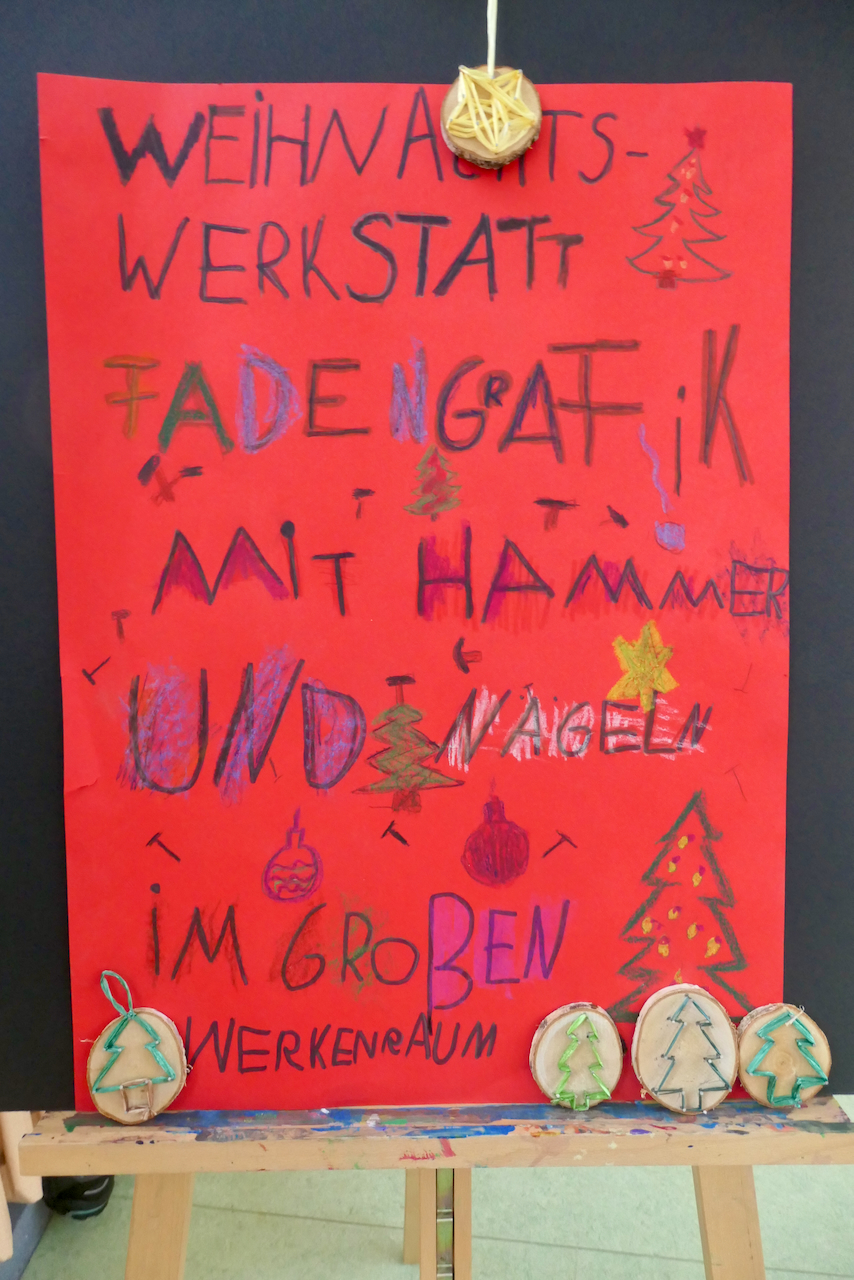 WEIHNACHTS-
WERKSTATT
FADENGRAFiK
MiT HAMMER
UND NÄGELN
iM GROßEN
WERKENRAUM